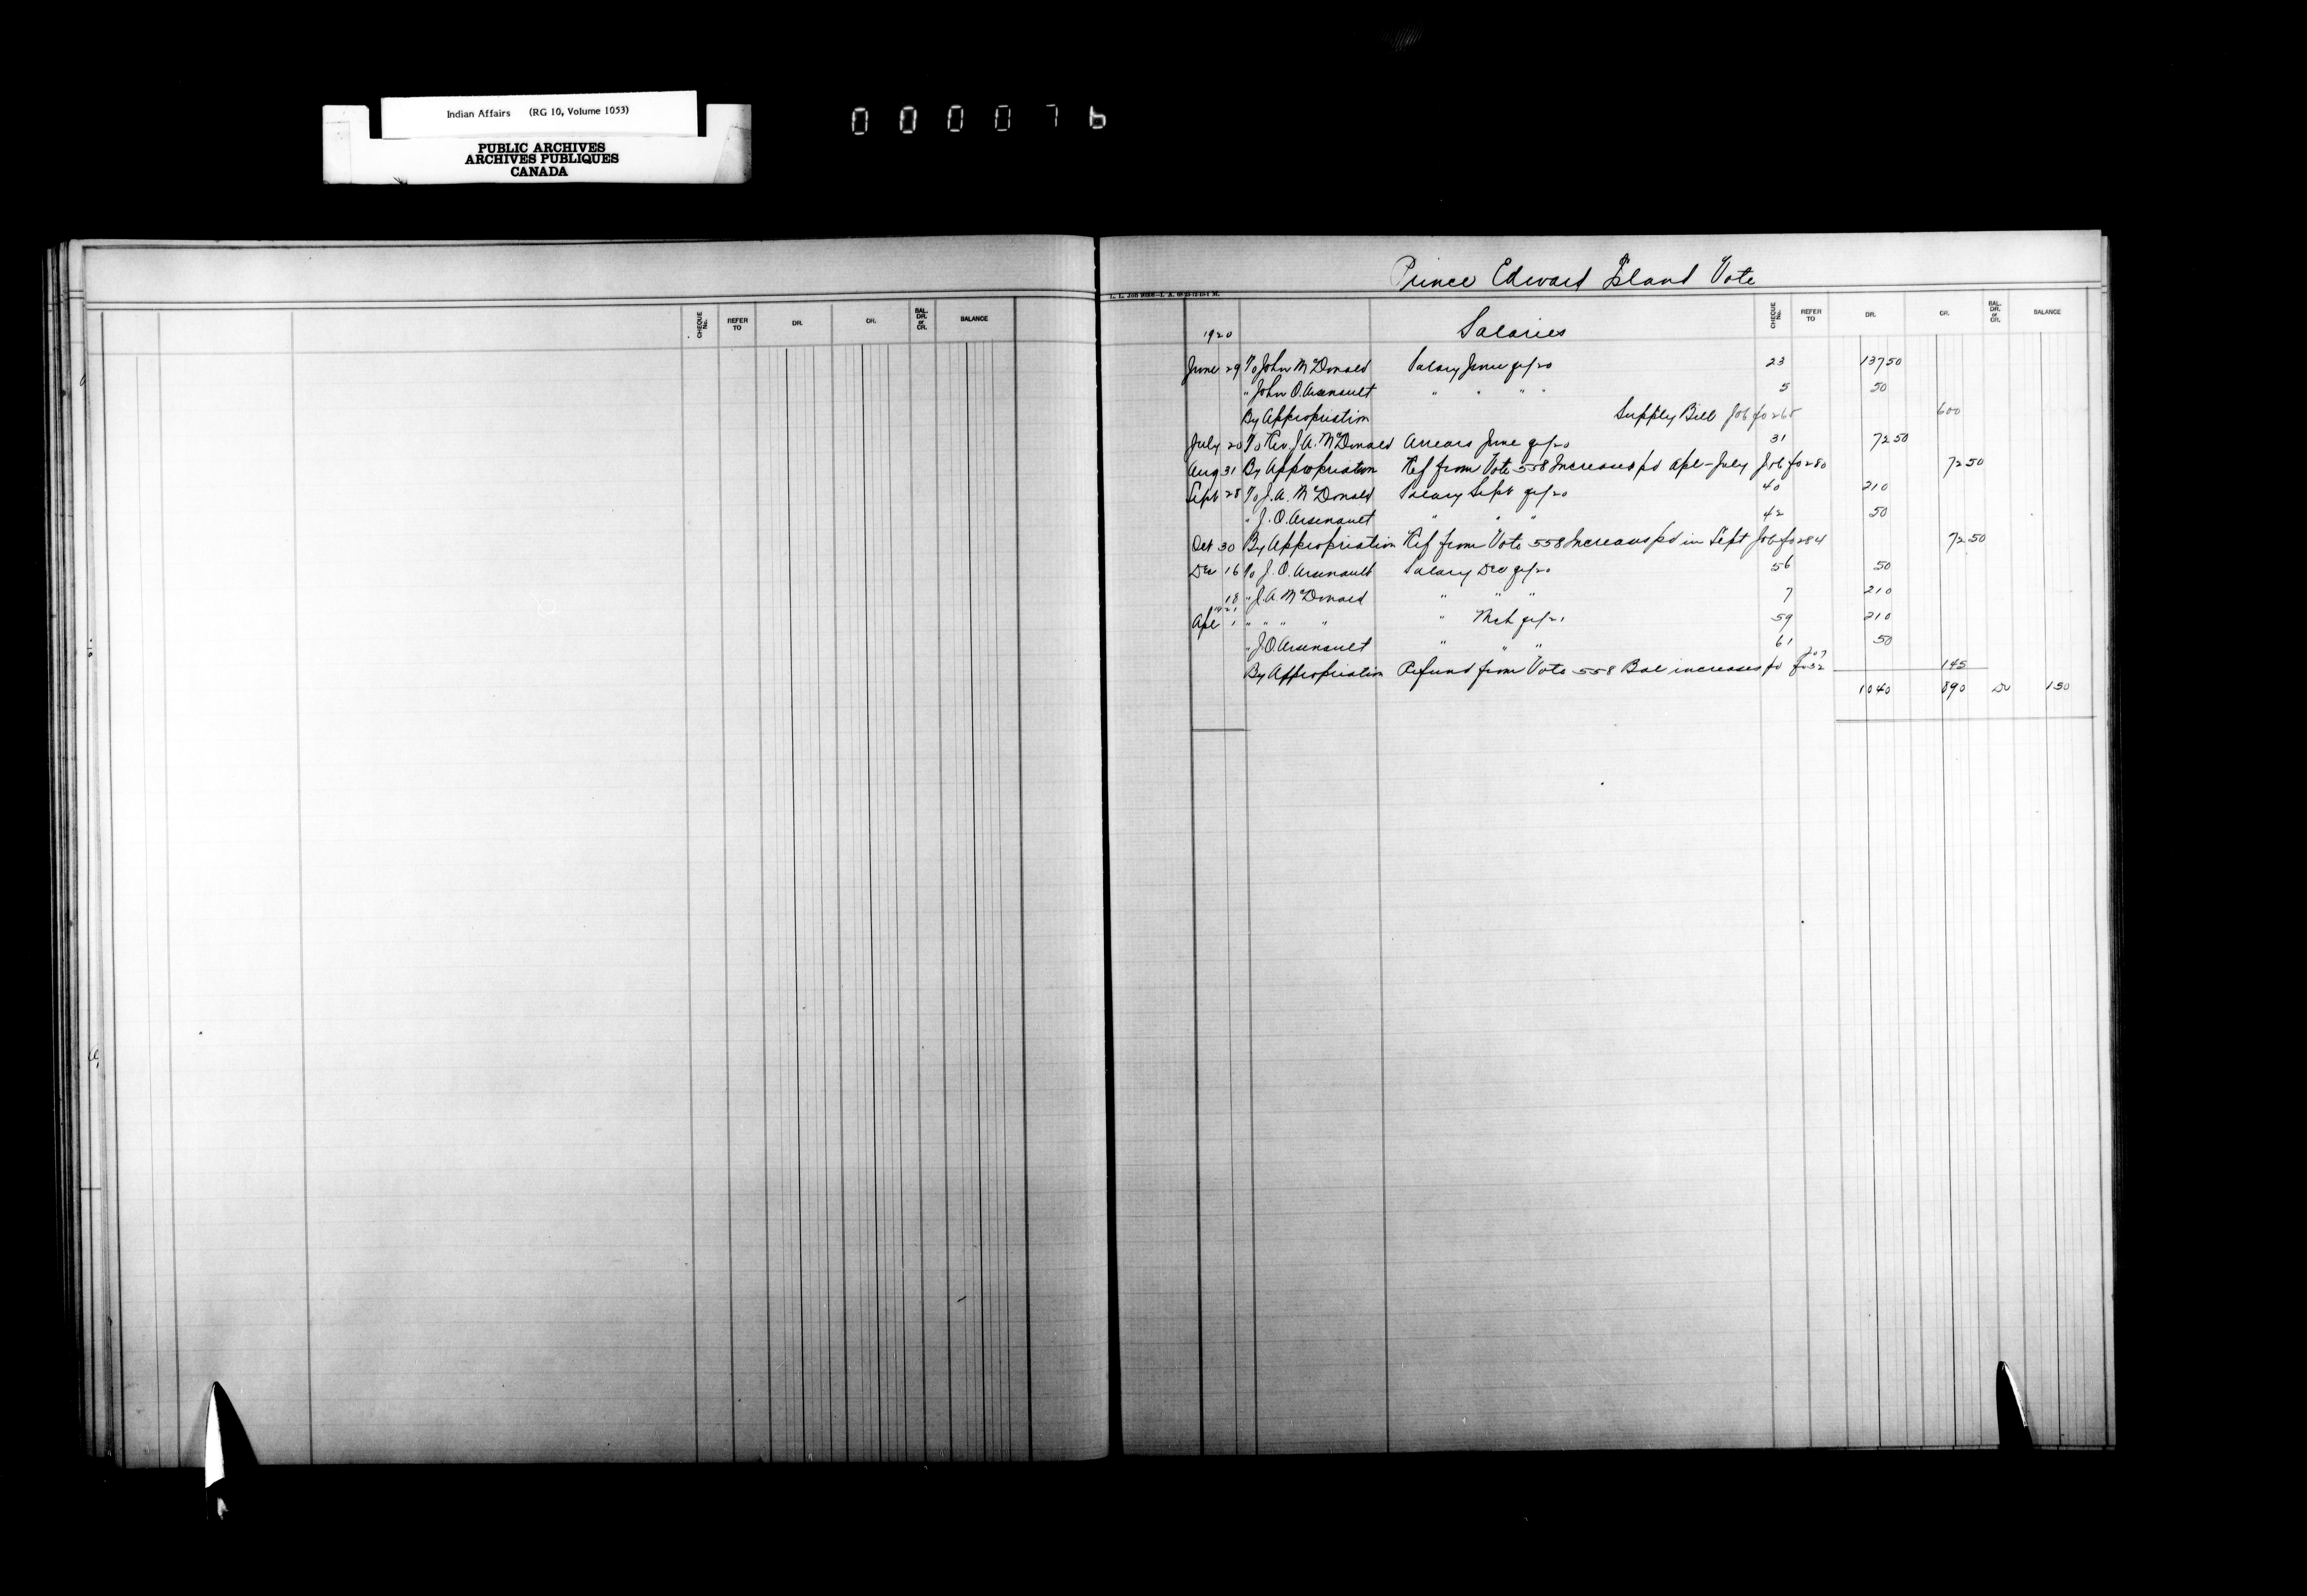 Indian Affairs (RG 10, Volume 1053)
PUBLIC ARCHIVES
ARCHIVES PUBLIQUES
CANADA
000076
CHEQUE No. REFER TO DR. CR. BAL. DR. or CR. BALANCE
Prince Edward Island Vote
CHEQUE No. REFER TO DR. CR. BAL. DR. or CR. BALANCE
1920 Salaries
June 29 To John McDonald Salary June qr/20 23 137 50
" John O. Arsenault " " " 5 50
By Appropriation Supply Bill Job fo 265 600
July 20 To Rev J. A. McDonald Arrears June qr/20 31 72 50
Aug 31 By Appropriation Ref from Vote 558 Increases pd Apl-July Job fo 280 72 50
Sept 28 To J. A. McDonald Salary Sept qr/20 40 210
" J. O. Arsenault " " " 42 50
Oct 30 By Appropriation Ref from Vote 558 Increases pd in Sept Job fo 284 72 50
Dec 16 To J. O. Arsenault Salary Dec qr/20 56 50
18 " J. A. McDonald " " " 7 210
1921
Apl 1 " " " " " Mch qr/21 59 210
" J. O. Arsenault " " " 61 50
By Appropriation Refund from Vote 558 Bal increases pd fo 32 145
1040 890 Dr 150